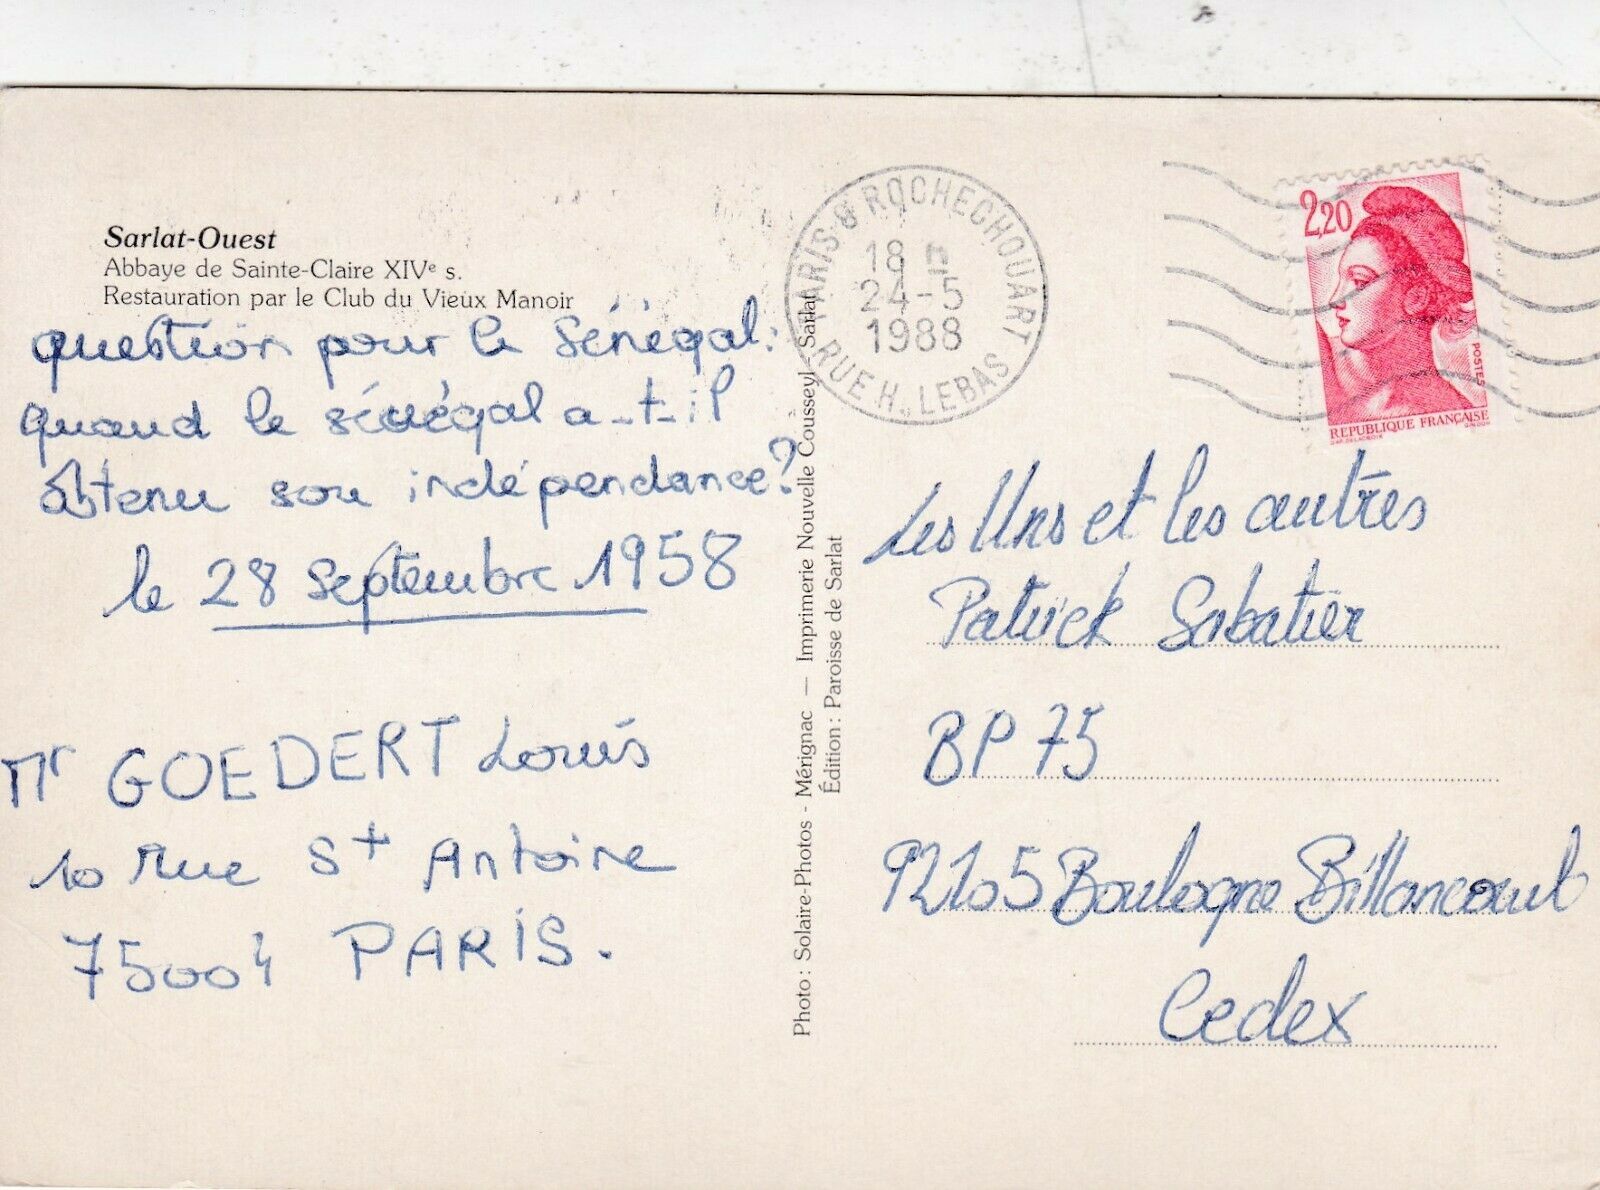 Sarlat-Ouest
Abbaye de Sainte-Claire XIVe s.
Restauration par le Club du Vieux Manoir
question pour le Sénégal:
quand le sénégal a-t-il
obtenu son indépendance?
le 28 septembre 1958
Mr GOEDERT Louis
10 rue St Antoine
75004 PARIS.
Photo: Solaire-Photos - Mérignac — Imprimerie Nouvelle Cousseyl - Sarlat
Édition: Paroisse de Sarlat
PARIS 8 ROCHECHOUART
18 H
24-5
1988
RUE H. LEBAS
2,20
POSTES
REPUBLIQUE FRANÇAISE
Les Uns et les autres
Patrick Sabatier
BP 75
92105 Boulogne Billancourt
Cedex